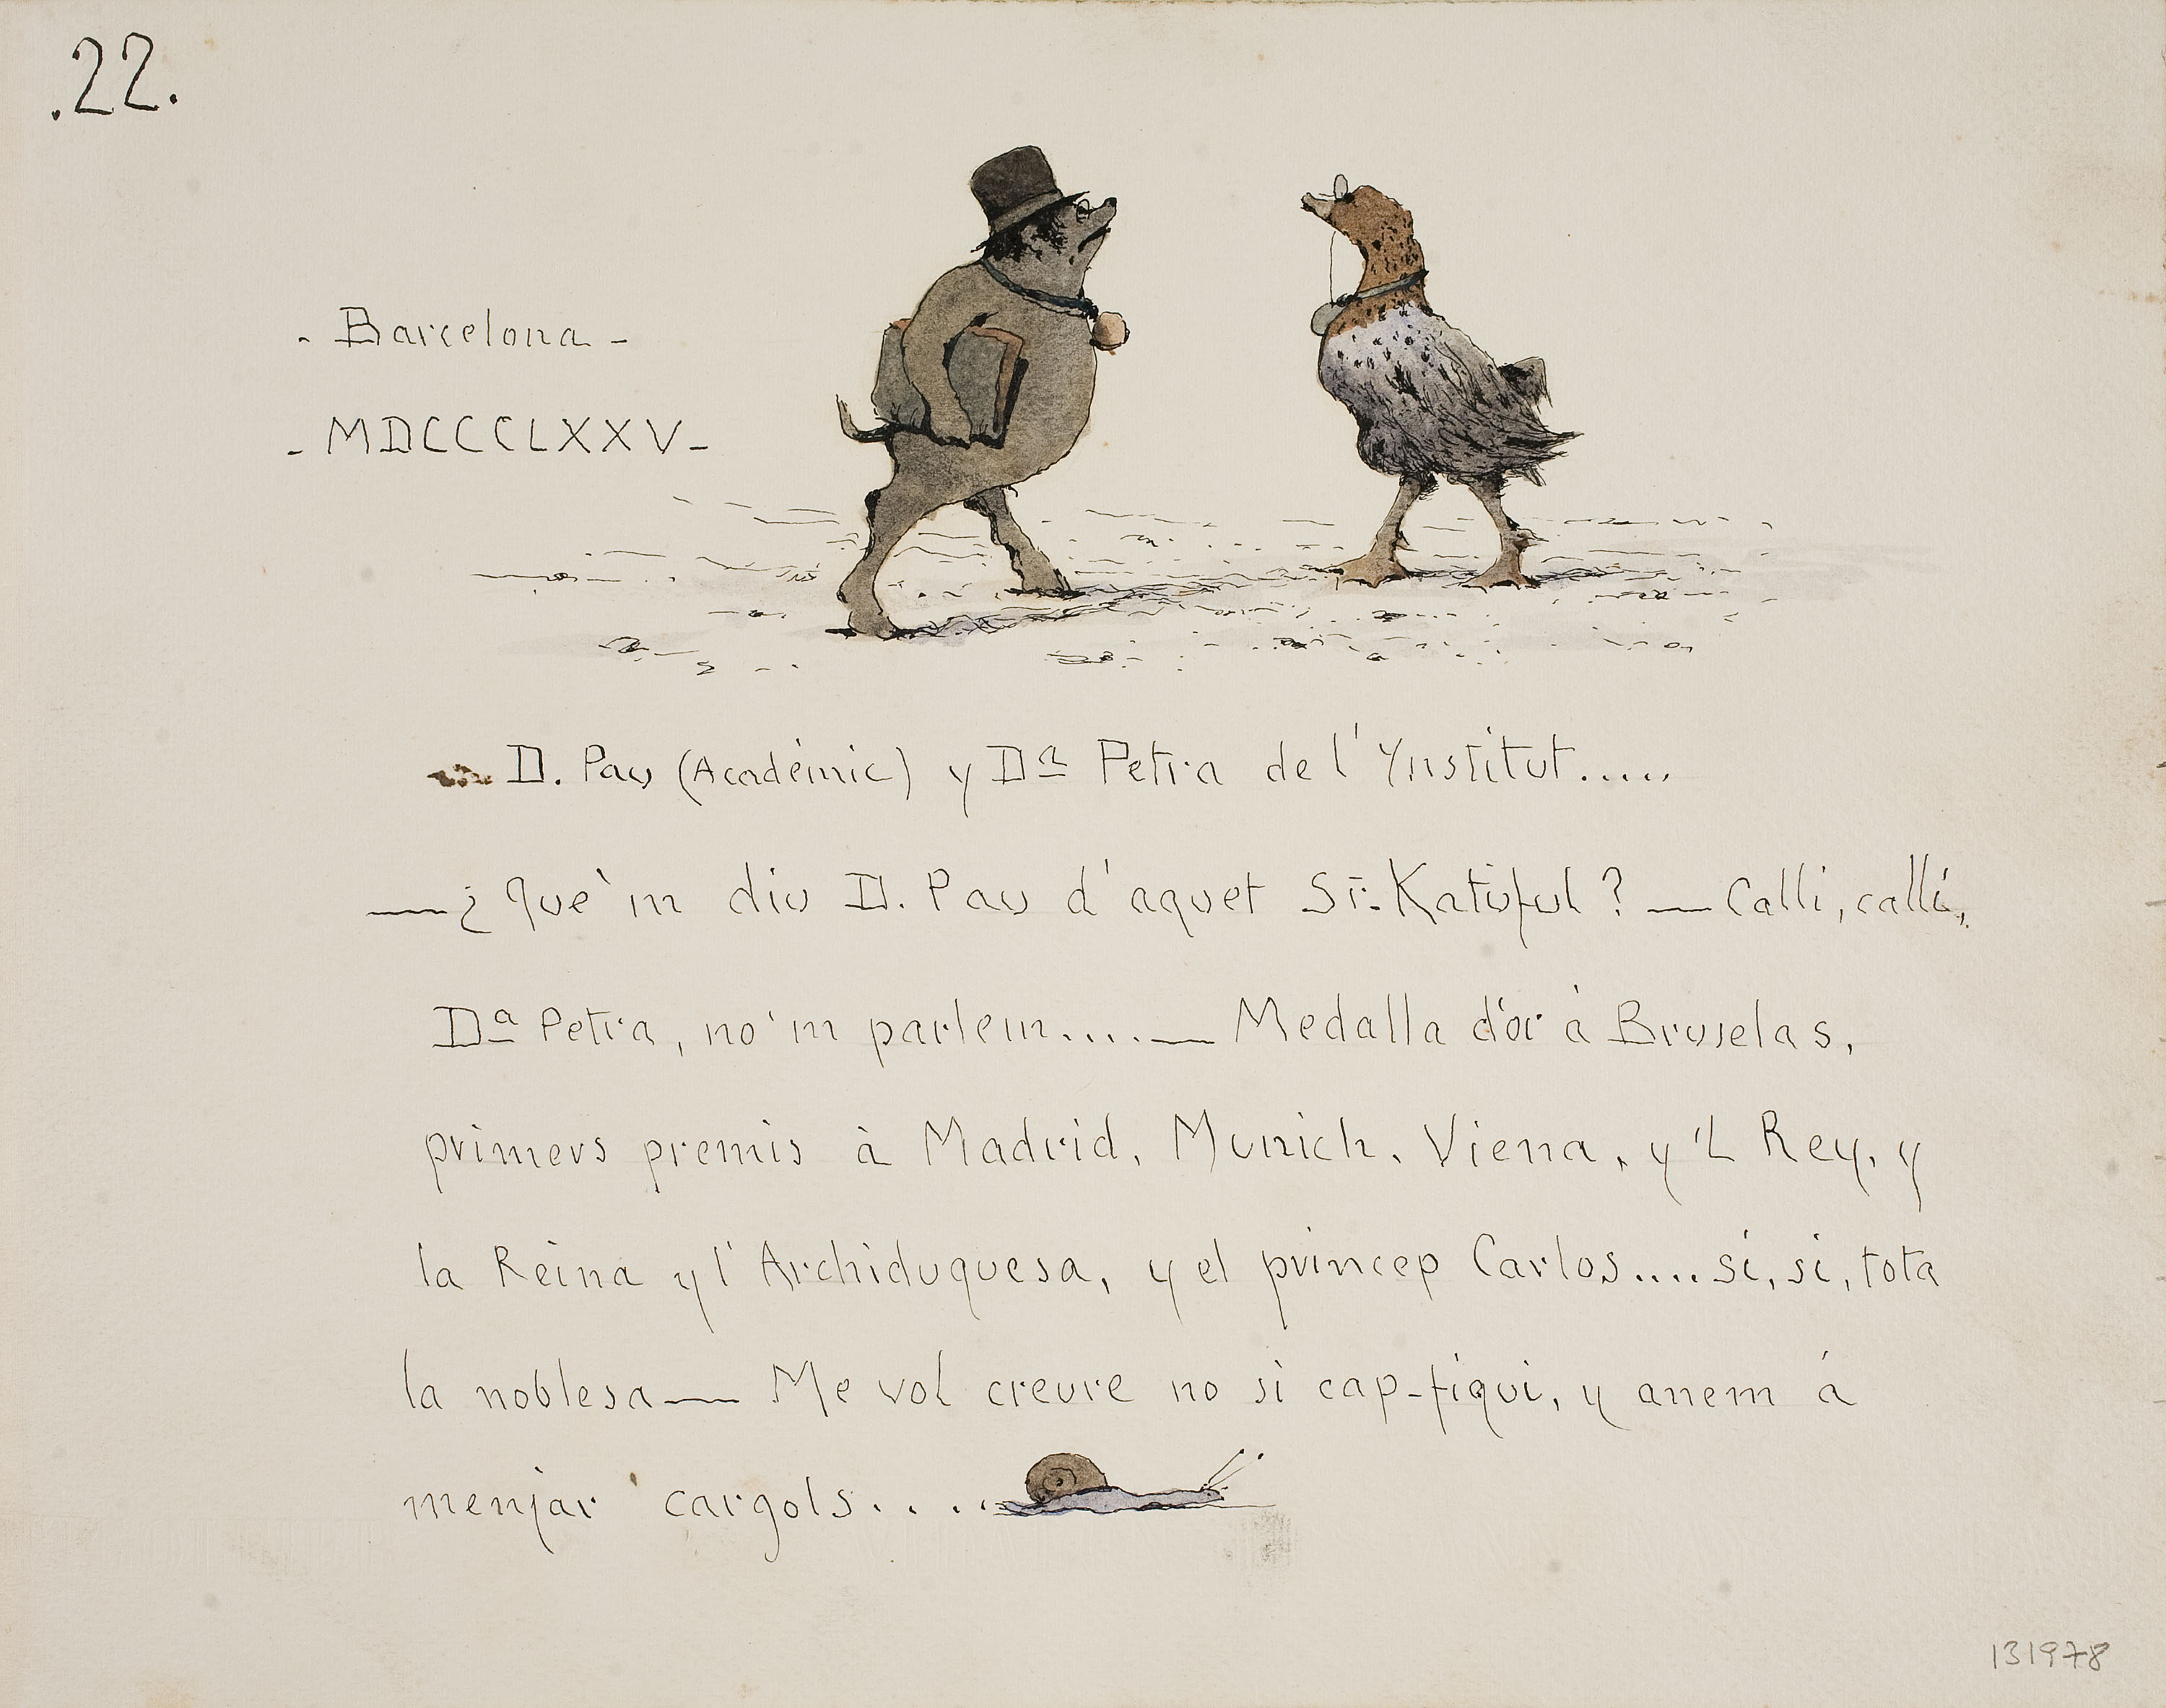 .22.
- Barcelona -
- MDCCCLXXV -
D. Pau (Académic) y Dª Petra de l'Ynstitut.....
—¿Que'm diu D. Pau d'aquet Sr. Katúful? — Calli, calli,
Dª Petra, no'm parlem.... — Medalla d'or à Bruselas,
primers premis à Madrid, Munich, Viena, y'l Rey, y
la Reina y l'Archiduquesa, y el princep Carlos.... si, si, tota
la noblesa — Me vol creure no si cap-fiqui, y anem á
menjar cargols.....
131978